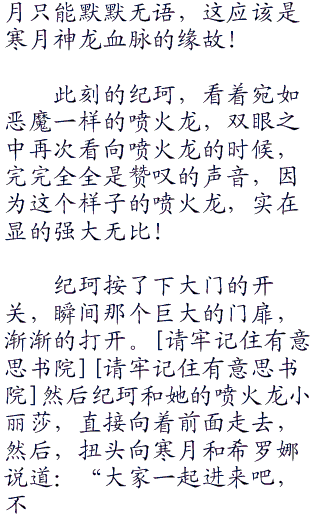 月只能默默无语，这应该是
寒月神龙血脉的缘故！
此刻的纪珂，看着宛如
恶魔一样的喷火龙，双眼之
中再次看向喷火龙的时候，
完完全全是赞叹的声音，因
为这个样子的喷火龙，实在
显的强大无比！
纪珂按了下大门的开
关，瞬间那个巨大的门扉，
渐渐的打开。[请牢记住有意
思书院][请牢记住有意思书
院]然后纪珂和她的喷火龙小
丽莎，直接向着前面走去，
然后，扭头向寒月和希罗娜
说道：“大家一起进来吧，
不